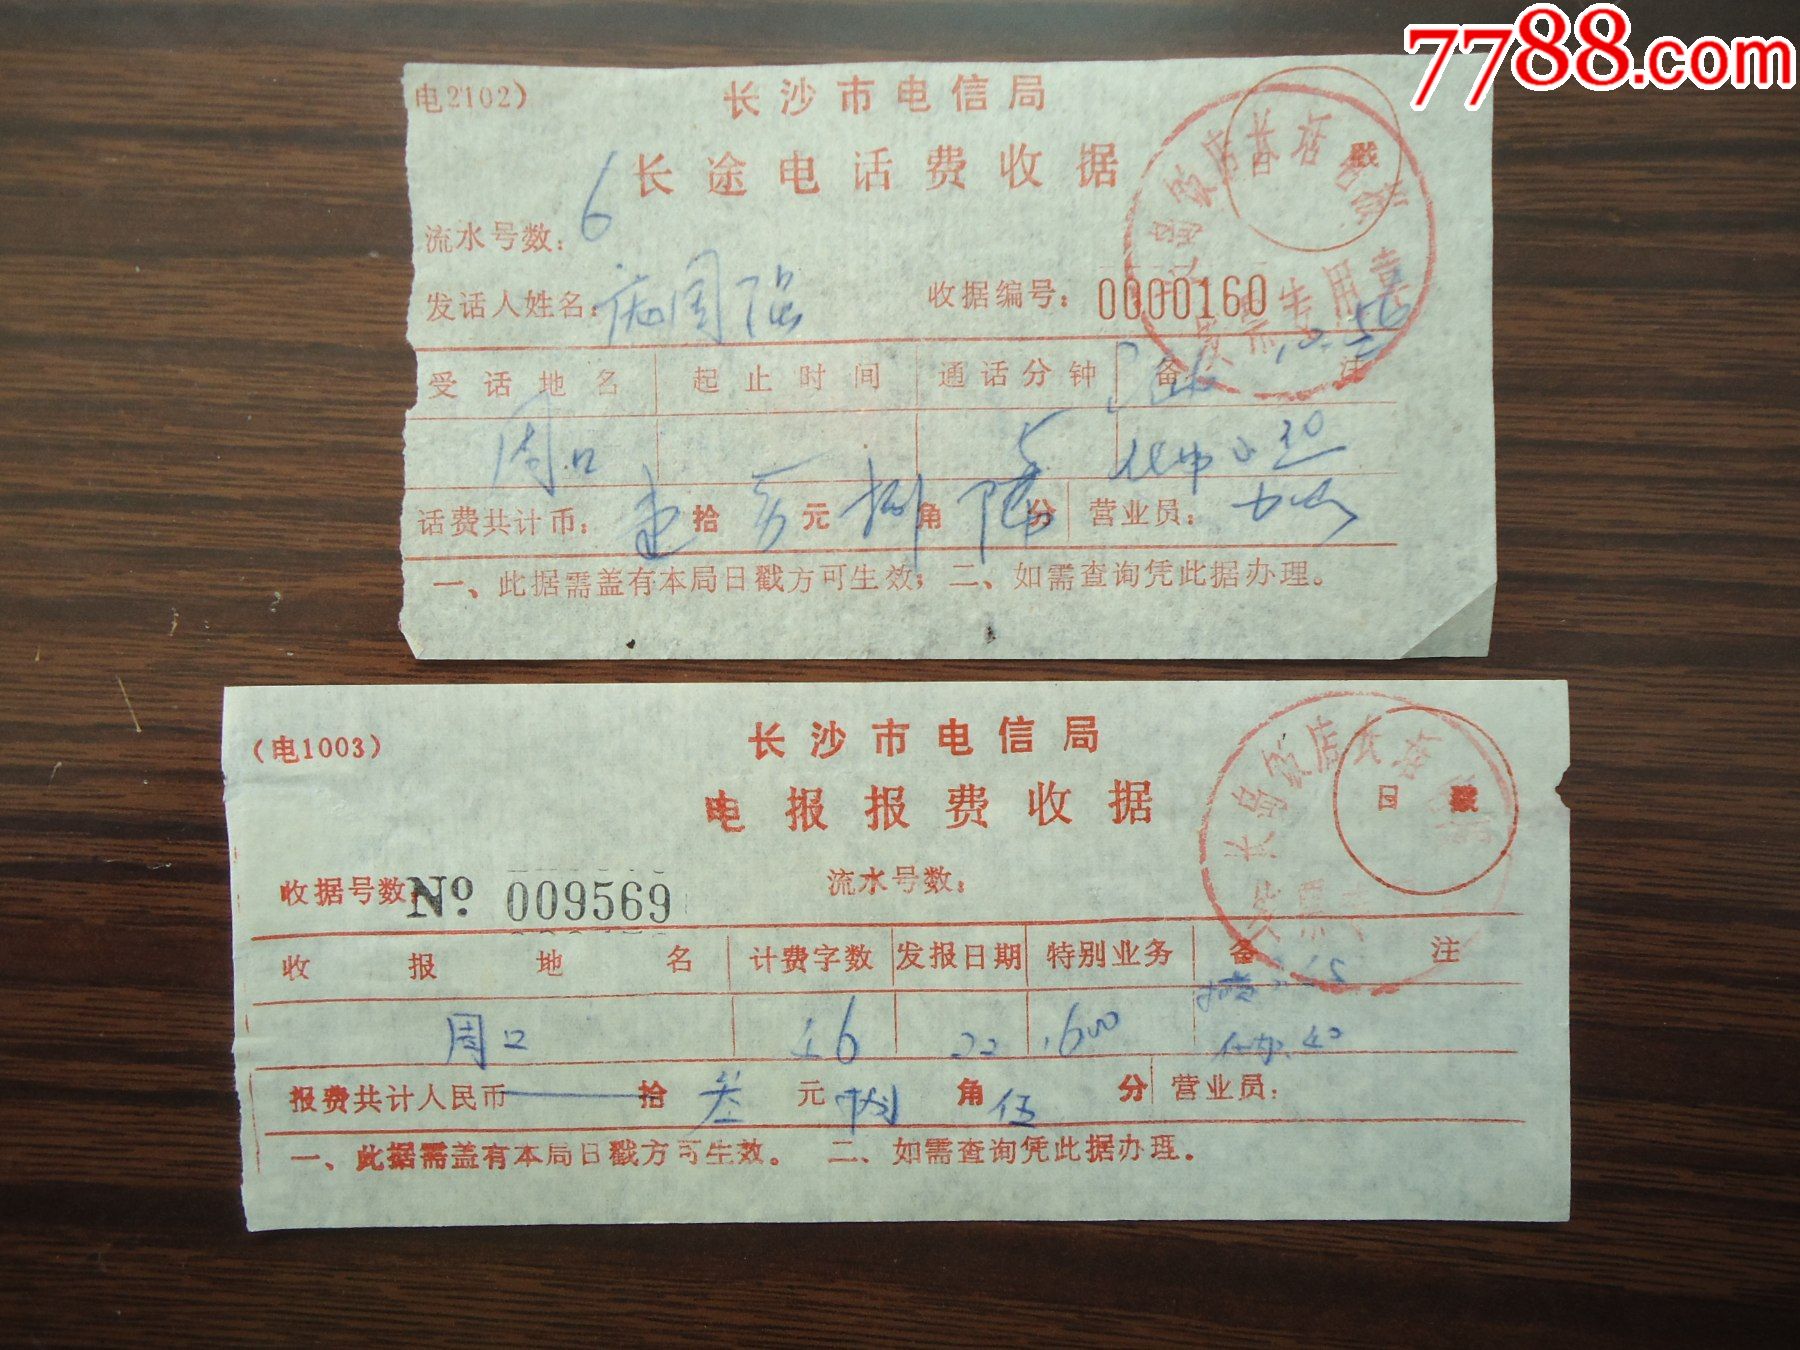 7788.com
电2102）
长沙市电信局
长途电话费收据
流水号数：6
发话人姓名： 周强
收据编号：0000160
日 戳
受话地名 起止时间 通话分钟 备 注
周口 5 30
话费共计币： 拾 元 捌 角 陆 分 营业员：
一、此据需盖有本局日戳方可生效；二、如需查询凭此据办理。
（电1003）
长沙市电信局
电报报费收据
日 戳
收据号数：No 009569 流水号数：
收报地名 计费字数 发报日期 特别业务 备 注
周口 22 1600
报费共计人民币 拾 叁 元 捌 角 伍 分 营业员：
一、此据需盖有本局日戳方可生效。 二、如需查询凭此据办理。